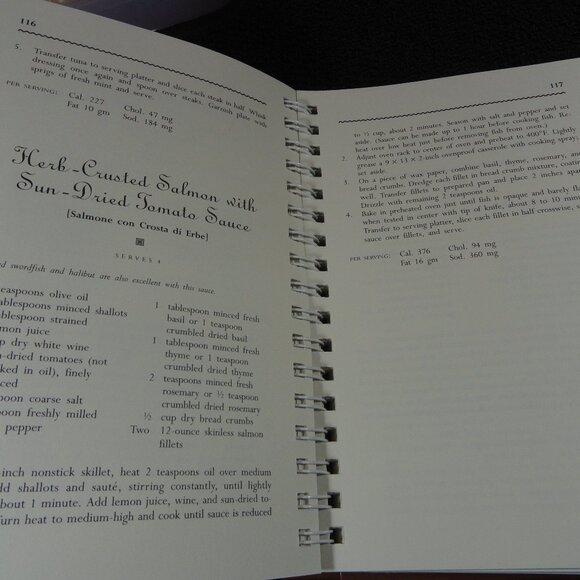 116
5. Transfer tuna to serving platter and slice each steak in half. Whisk
dressing once again and spoon over steaks. Garnish plate with
sprigs of fresh mint and serve.
PER SERVING: Cal. 227 Chol. 47 mg
Fat 10 gm Sod. 184 mg
Herb-Crusted Salmon with
Sun-Dried Tomato Sauce
[Salmone con Crosta di Erbe]
SERVES 4
d swordfish and halibut are also excellent with this sauce.
easpoons olive oil
ablespoons minced shallots
ablespoon strained
mon juice
p dry white wine
n-dried tomatoes (not
ked in oil), finely
ced
spoon coarse salt
poon freshly milled
pepper
1 tablespoon minced fresh
basil or 1 teaspoon
crumbled dried basil
1 tablespoon minced fresh
thyme or 1 teaspoon
crumbled dried thyme
2 teaspoons minced fresh
rosemary or ½ teaspoon
crumbled dried rosemary
½ cup dry bread crumbs
Two 12-ounce skinless salmon
fillets
-inch nonstick skillet, heat 2 teaspoons oil over medium
dd shallots and sauté, stirring constantly, until lightly
about 1 minute. Add lemon juice, wine, and sun-dried to-
Turn heat to medium-high and cook until sauce is reduced
117
to ½ cup, about 2 minutes. Season with salt and pepper and set
aside. (Sauce can be made up to 1 hour before cooking fish. Re-
heat over low heat just before removing fish from oven.)
2. Adjust oven rack to center of oven and preheat to 400°F. Lightly
grease a 9 × 13 × 2-inch ovenproof casserole with cooking spray;
set aside.
3. On a piece of wax paper, combine basil, thyme, rosemary, and
bread crumbs. Dredge each fillet in bread crumb mixture, coating
well. Transfer fillets to prepared pan and place 2 inches apart.
Drizzle with remaining 2 teaspoons oil.
4. Bake in preheated oven just until fish is opaque and barely fl
when tested in center with tip of knife, about 8 to 10 minu
Transfer to serving platter, slice each fillet in half crosswise,
sauce over fillets, and serve.
PER SERVING: Cal. 376 Chol. 94 mg
Fat 16 gm Sod. 360 mg